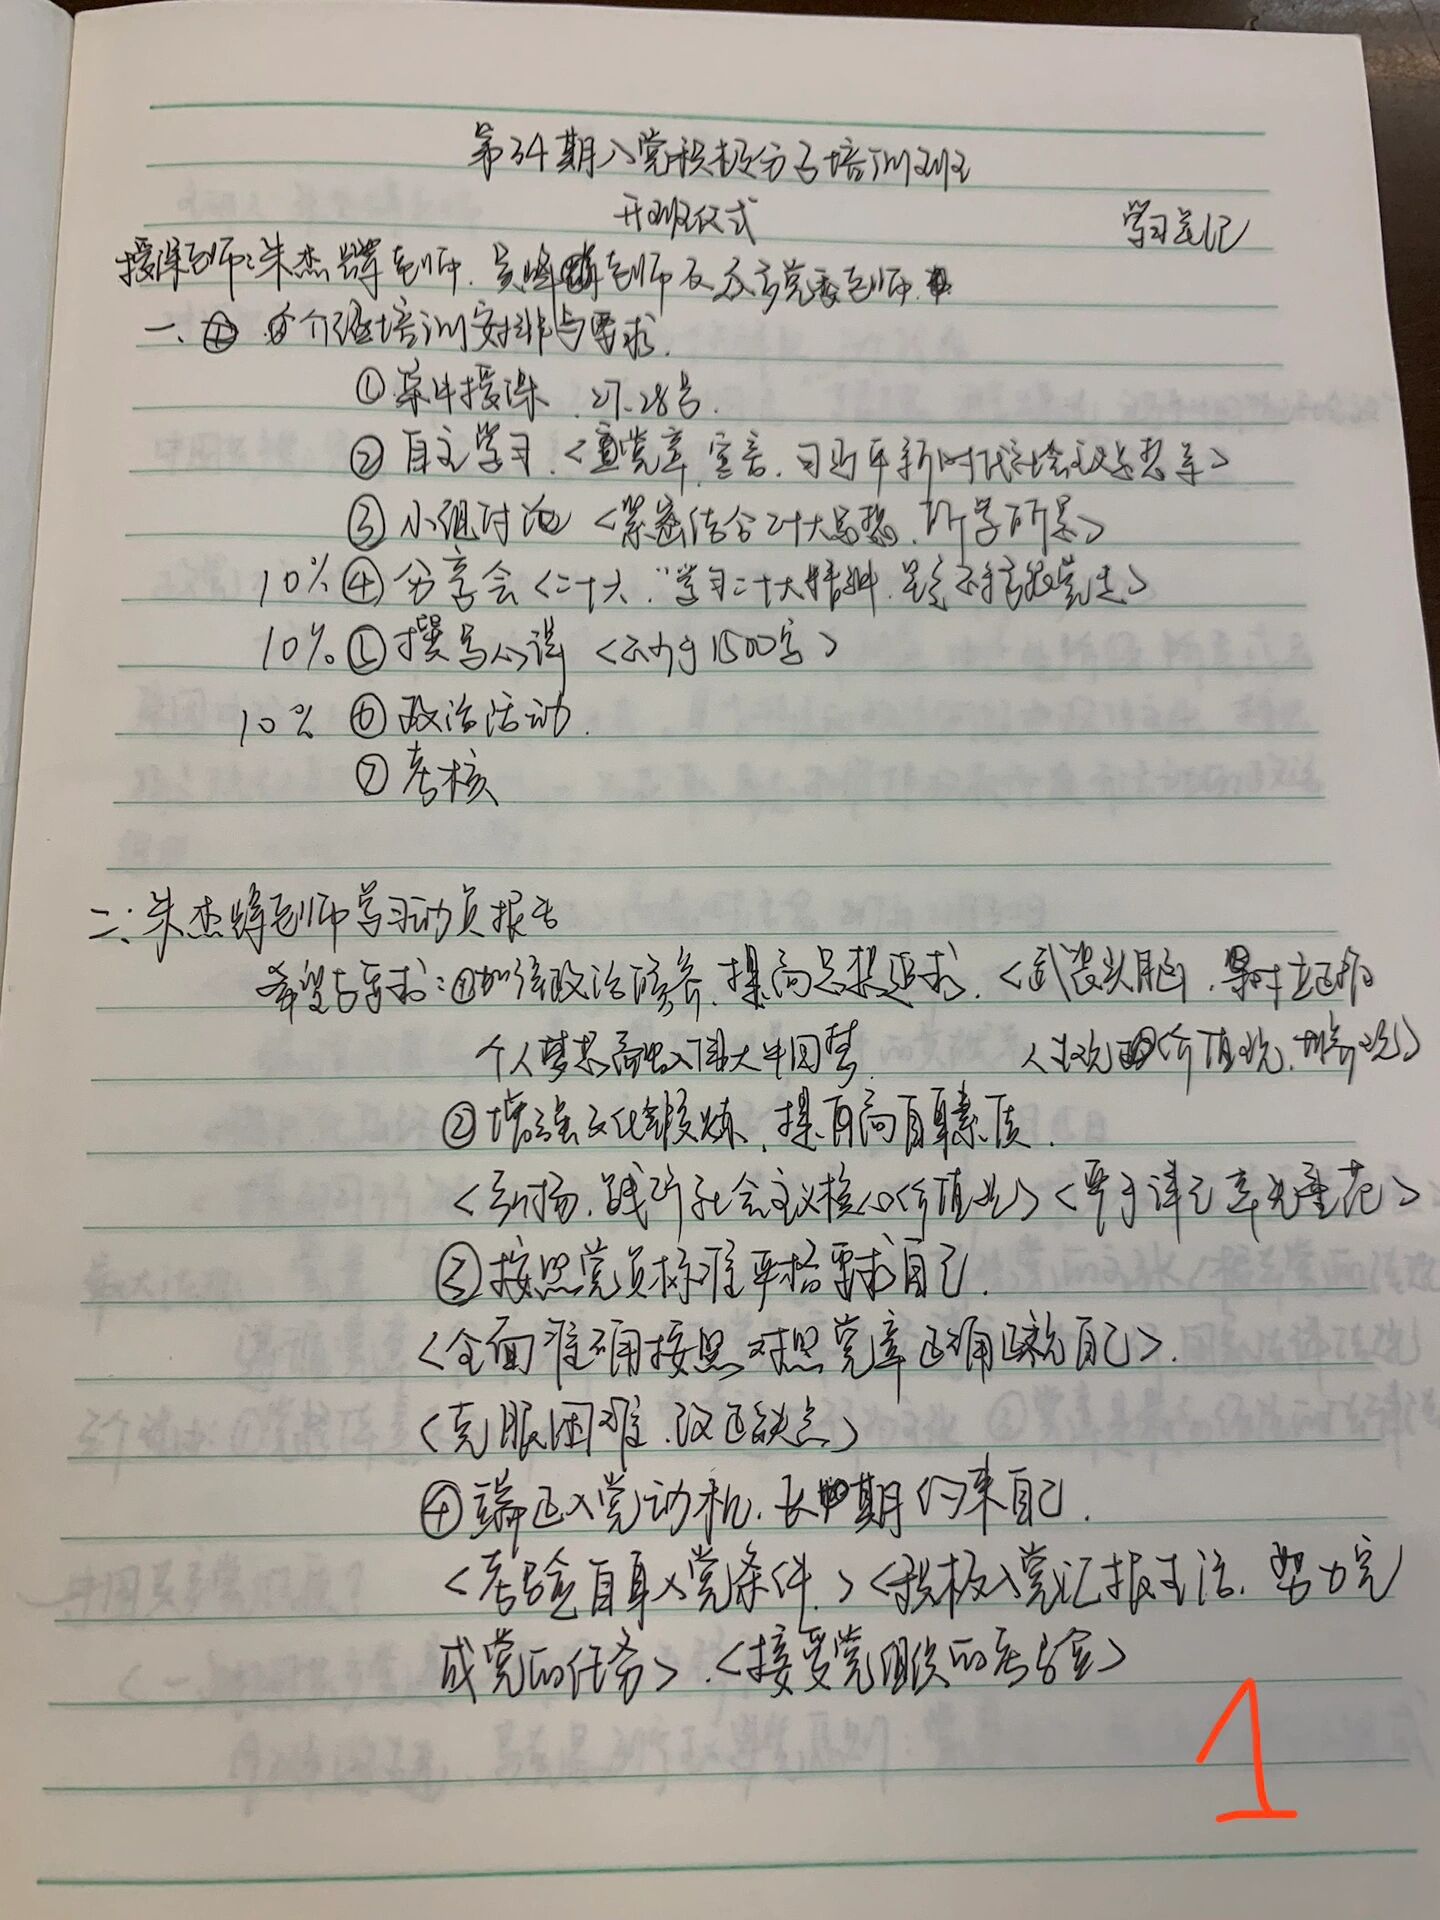 第34期入党积极分子培训班
开班仪式 学习笔记
授课老师:朱杰辉老师、老师及党委老师
一、介绍培训安排与要求.
①集中授课、27、28号.
②自主学习、<党章、宣言、习近平新时代社会主义思想等>
③小组讨论 <紧密结合二十大思想、所学所思>
10% ④分享会<二十大、"学习二十大精神、坚定不移跟党走>
10% ⑤撰写心得 <不少于1500字>
10% ⑥政治活动.
⑦考核
二、朱杰辉老师学习动员报告
希望与要求:①加强政治修养、提高思想追求、<武装头脑、树立正确
个人梦想融入伟大中国梦. 人生观价值观、世界观>
②增强文化锻炼、提高自身素质.
<弘扬、践行社会主义核心价值观><严于律己率先垂范>
③按照党员标准严格要求自己.
<全面准确按照对照党章正确正视自己>.
<克服困难、改正缺点>
④端正入党动机、长期约束自己.
<考验自身入党条件、><积极入党汇报生活、努力完
成党的任务>、<接受党组织的考验>
1